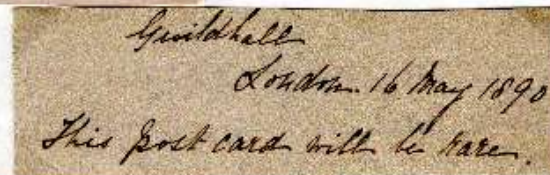 Guildhall
London. 16 May 1890
This post card will be rare.